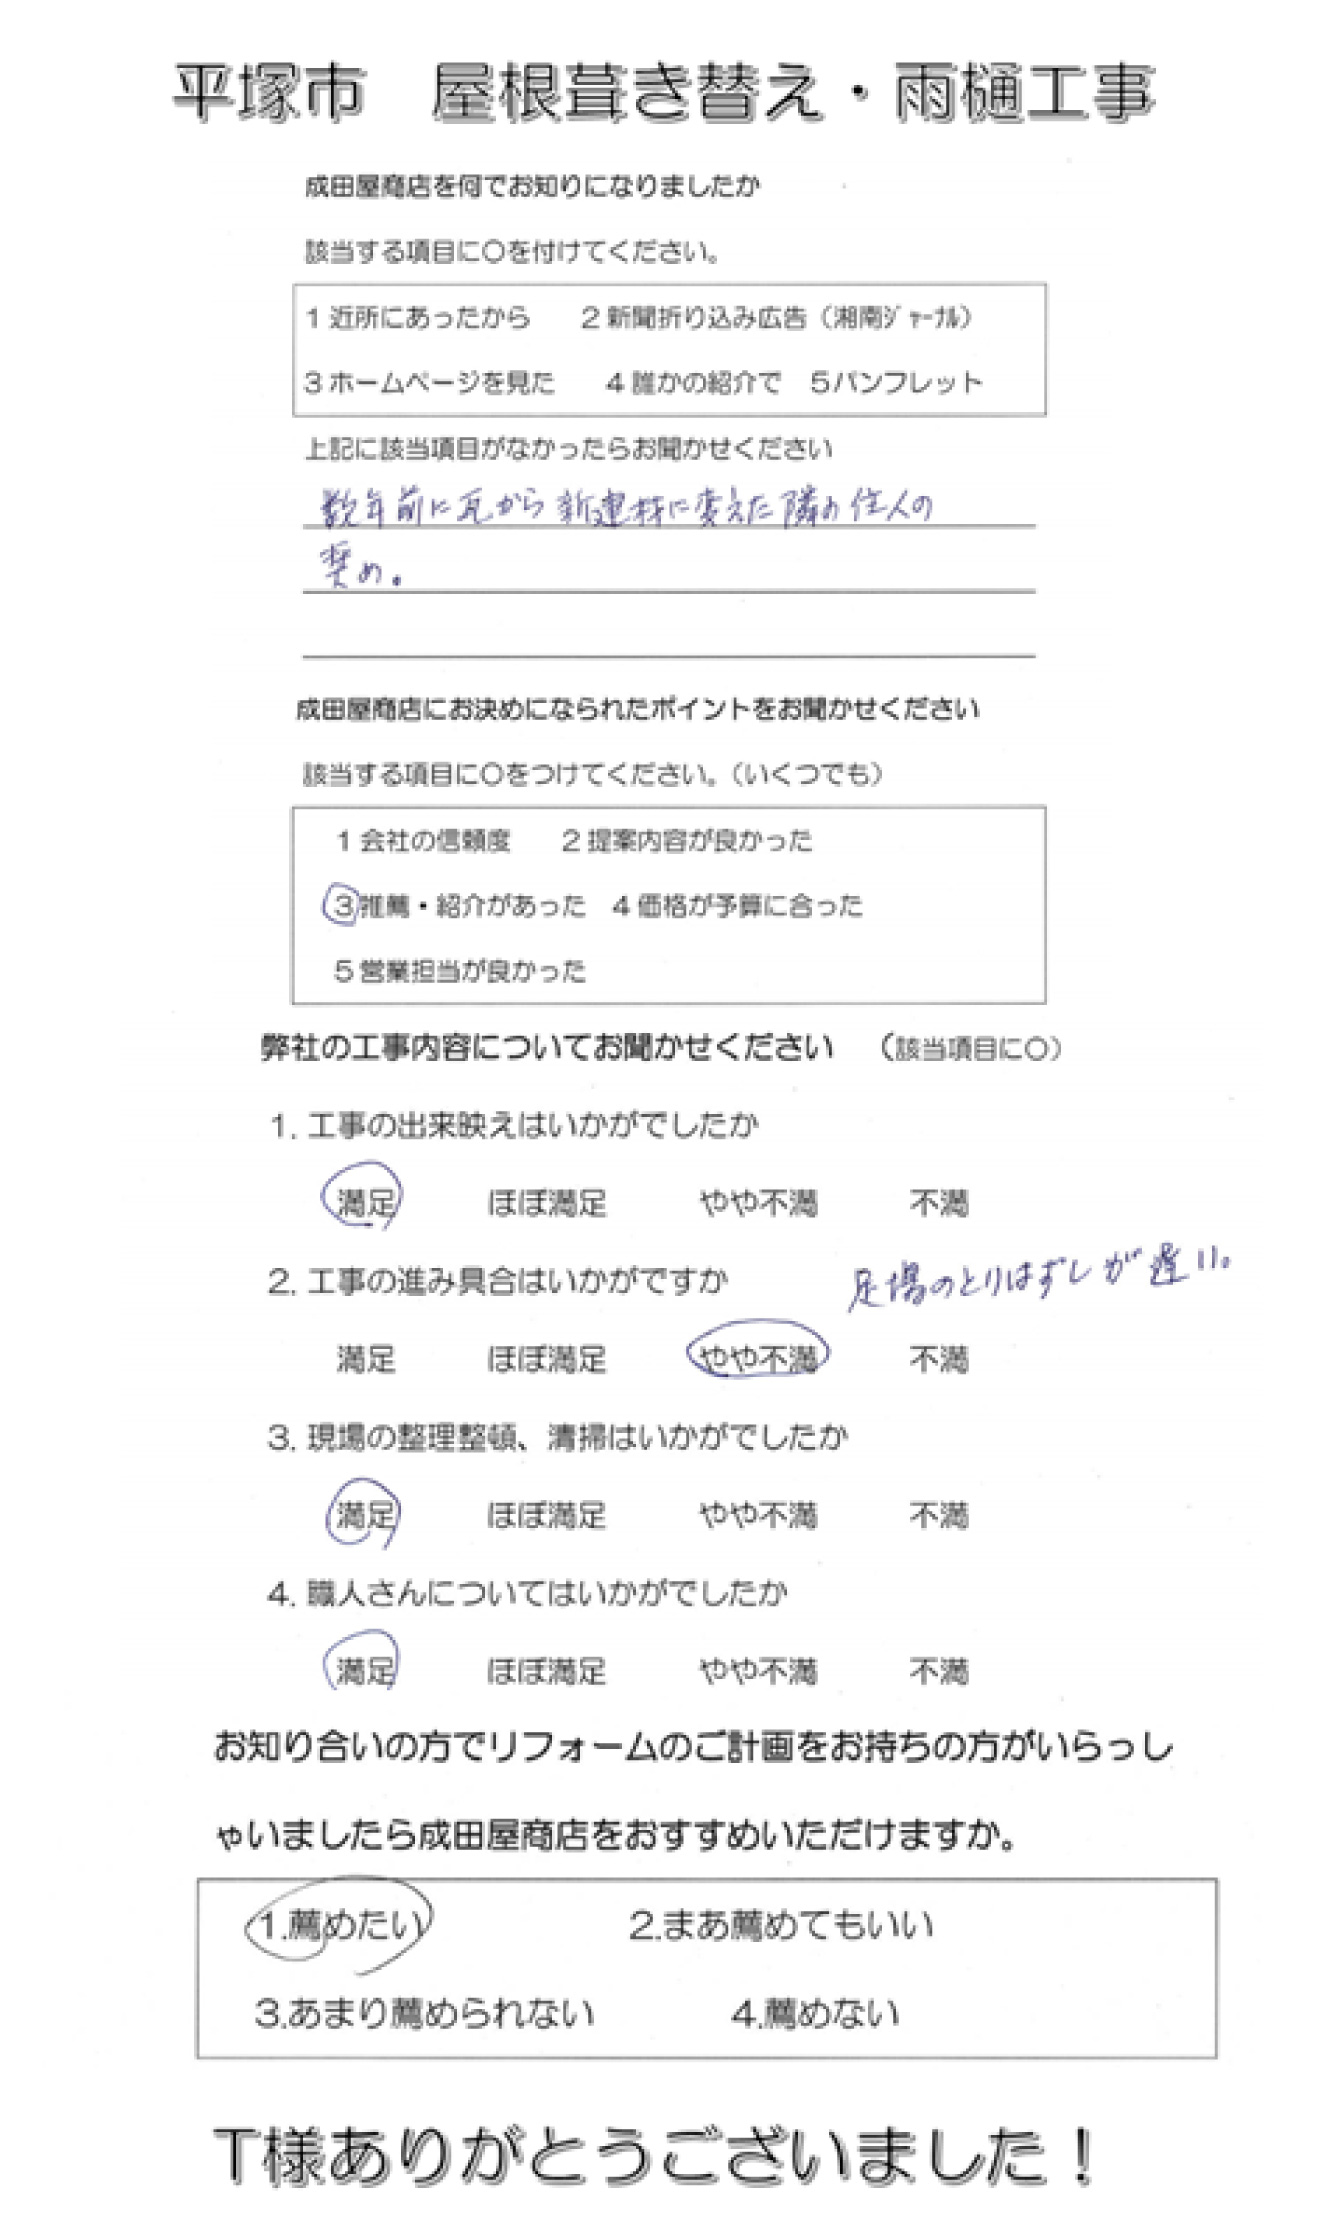 平塚市　屋根葺き替え・雨樋工事
成田屋商店を何でお知りになりましたか
該当する項目に〇を付けてください。
1 近所にあったから　2 新聞折り込み広告（湘南ｼﾞｬｰﾅﾙ）
3 ホームページを見た　4 誰かの紹介で　5パンフレット
上記に該当項目がなかったらお聞かせください
数年前に瓦から新建材に変えた隣の住人の
奨め。
成田屋商店にお決めになられたポイントをお聞かせください
該当する項目に〇をつけてください。（いくつでも）
1 会社の信頼度　2 提案内容が良かった
3 推薦・紹介があった　4 価格が予算に合った
5 営業担当が良かった
弊社の工事内容についてお聞かせください　（該当項目に〇）
1. 工事の出来映えはいかがでしたか
満足　ほぼ満足　やや不満　不満
2. 工事の進み具合はいかがですか　足場のとりはずしが遅い。
満足　ほぼ満足　やや不満　不満
3. 現場の整理整頓、清掃はいかがでしたか
満足　ほぼ満足　やや不満　不満
4. 職人さんについてはいかがでしたか
満足　ほぼ満足　やや不満　不満
お知り合いの方でリフォームのご計画をお持ちの方がいらっし
ゃいましたら成田屋商店をおすすめいただけますか。
1.薦めたい　2.まあ薦めてもいい
3.あまり薦められない　4.薦めない
T様ありがとうございました！